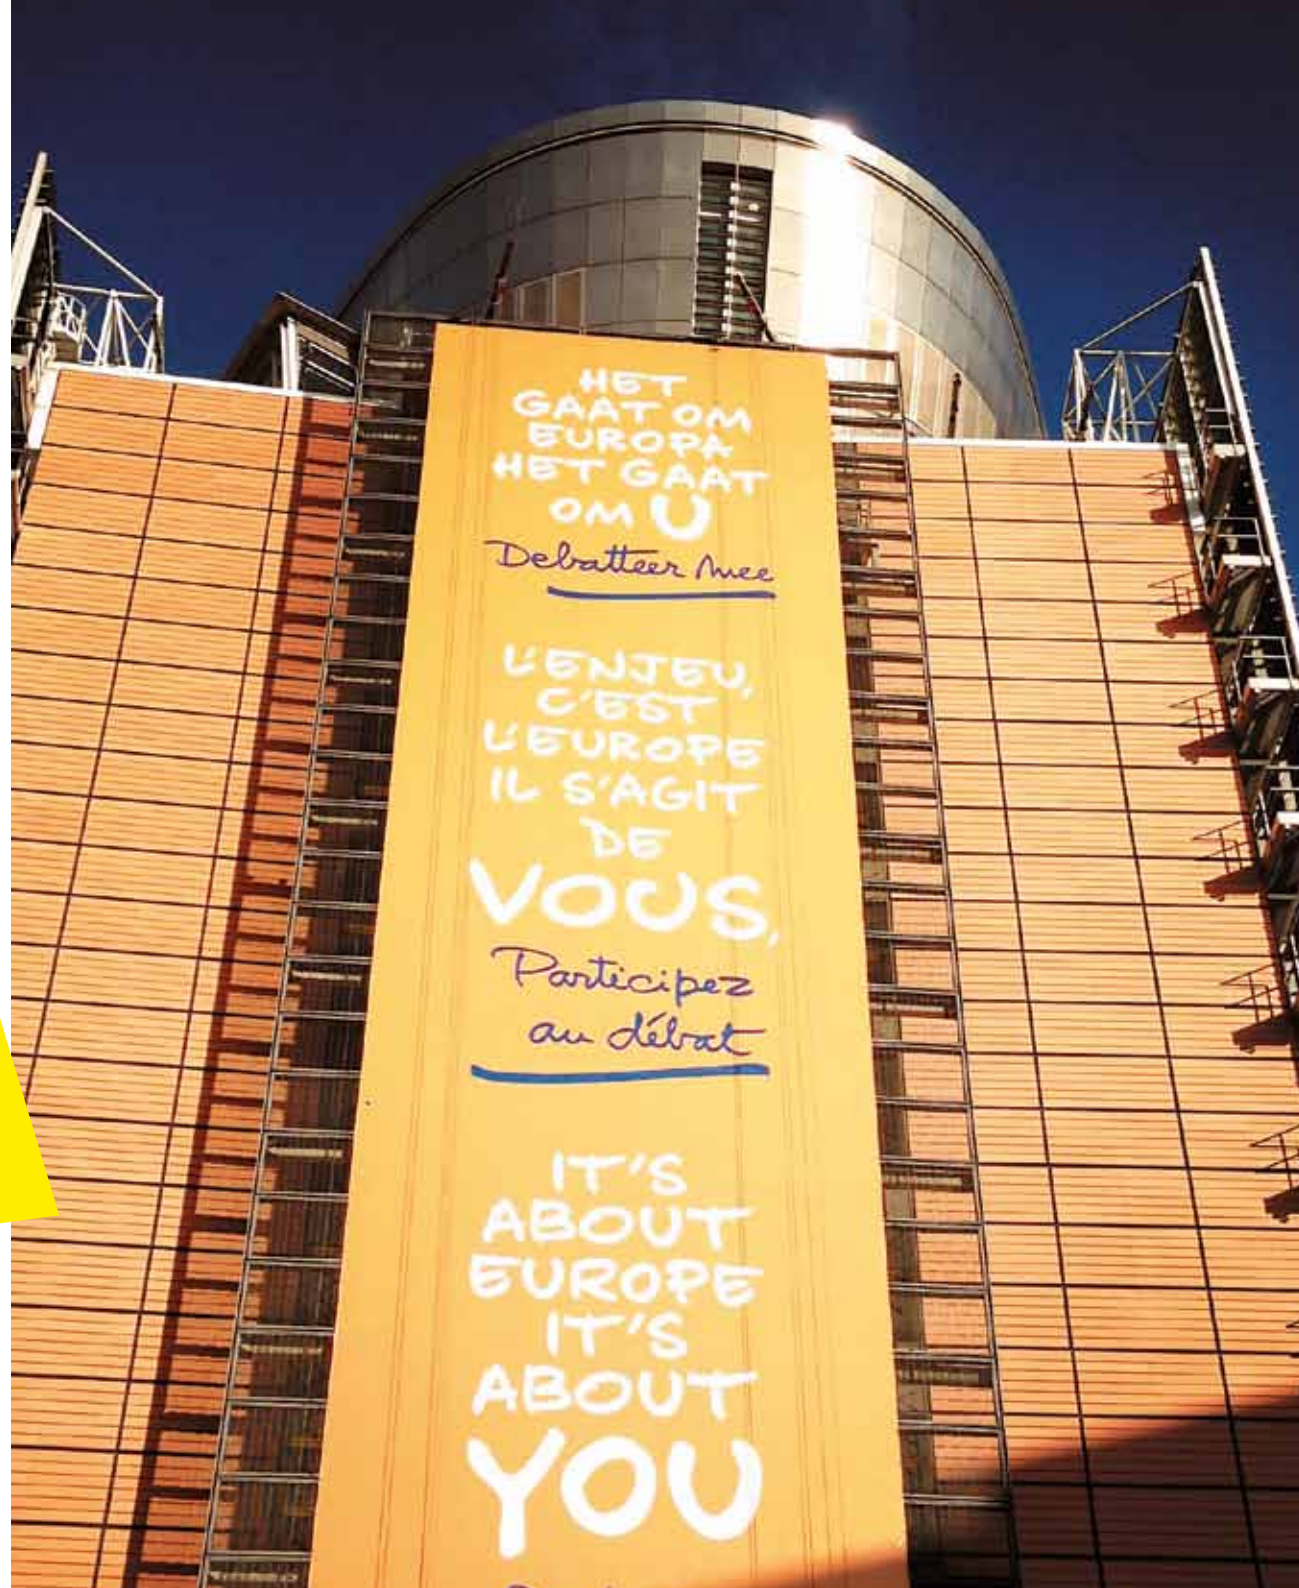 HET
GAAT OM
EUROPA
HET GAAT
OM U
Debatteer mee
L'ENJEU,
C'EST
L'EUROPE
IL S'AGIT
DE
VOUS,
Participez
au débat
IT'S
ABOUT
EUROPE
IT'S
ABOUT
YOU